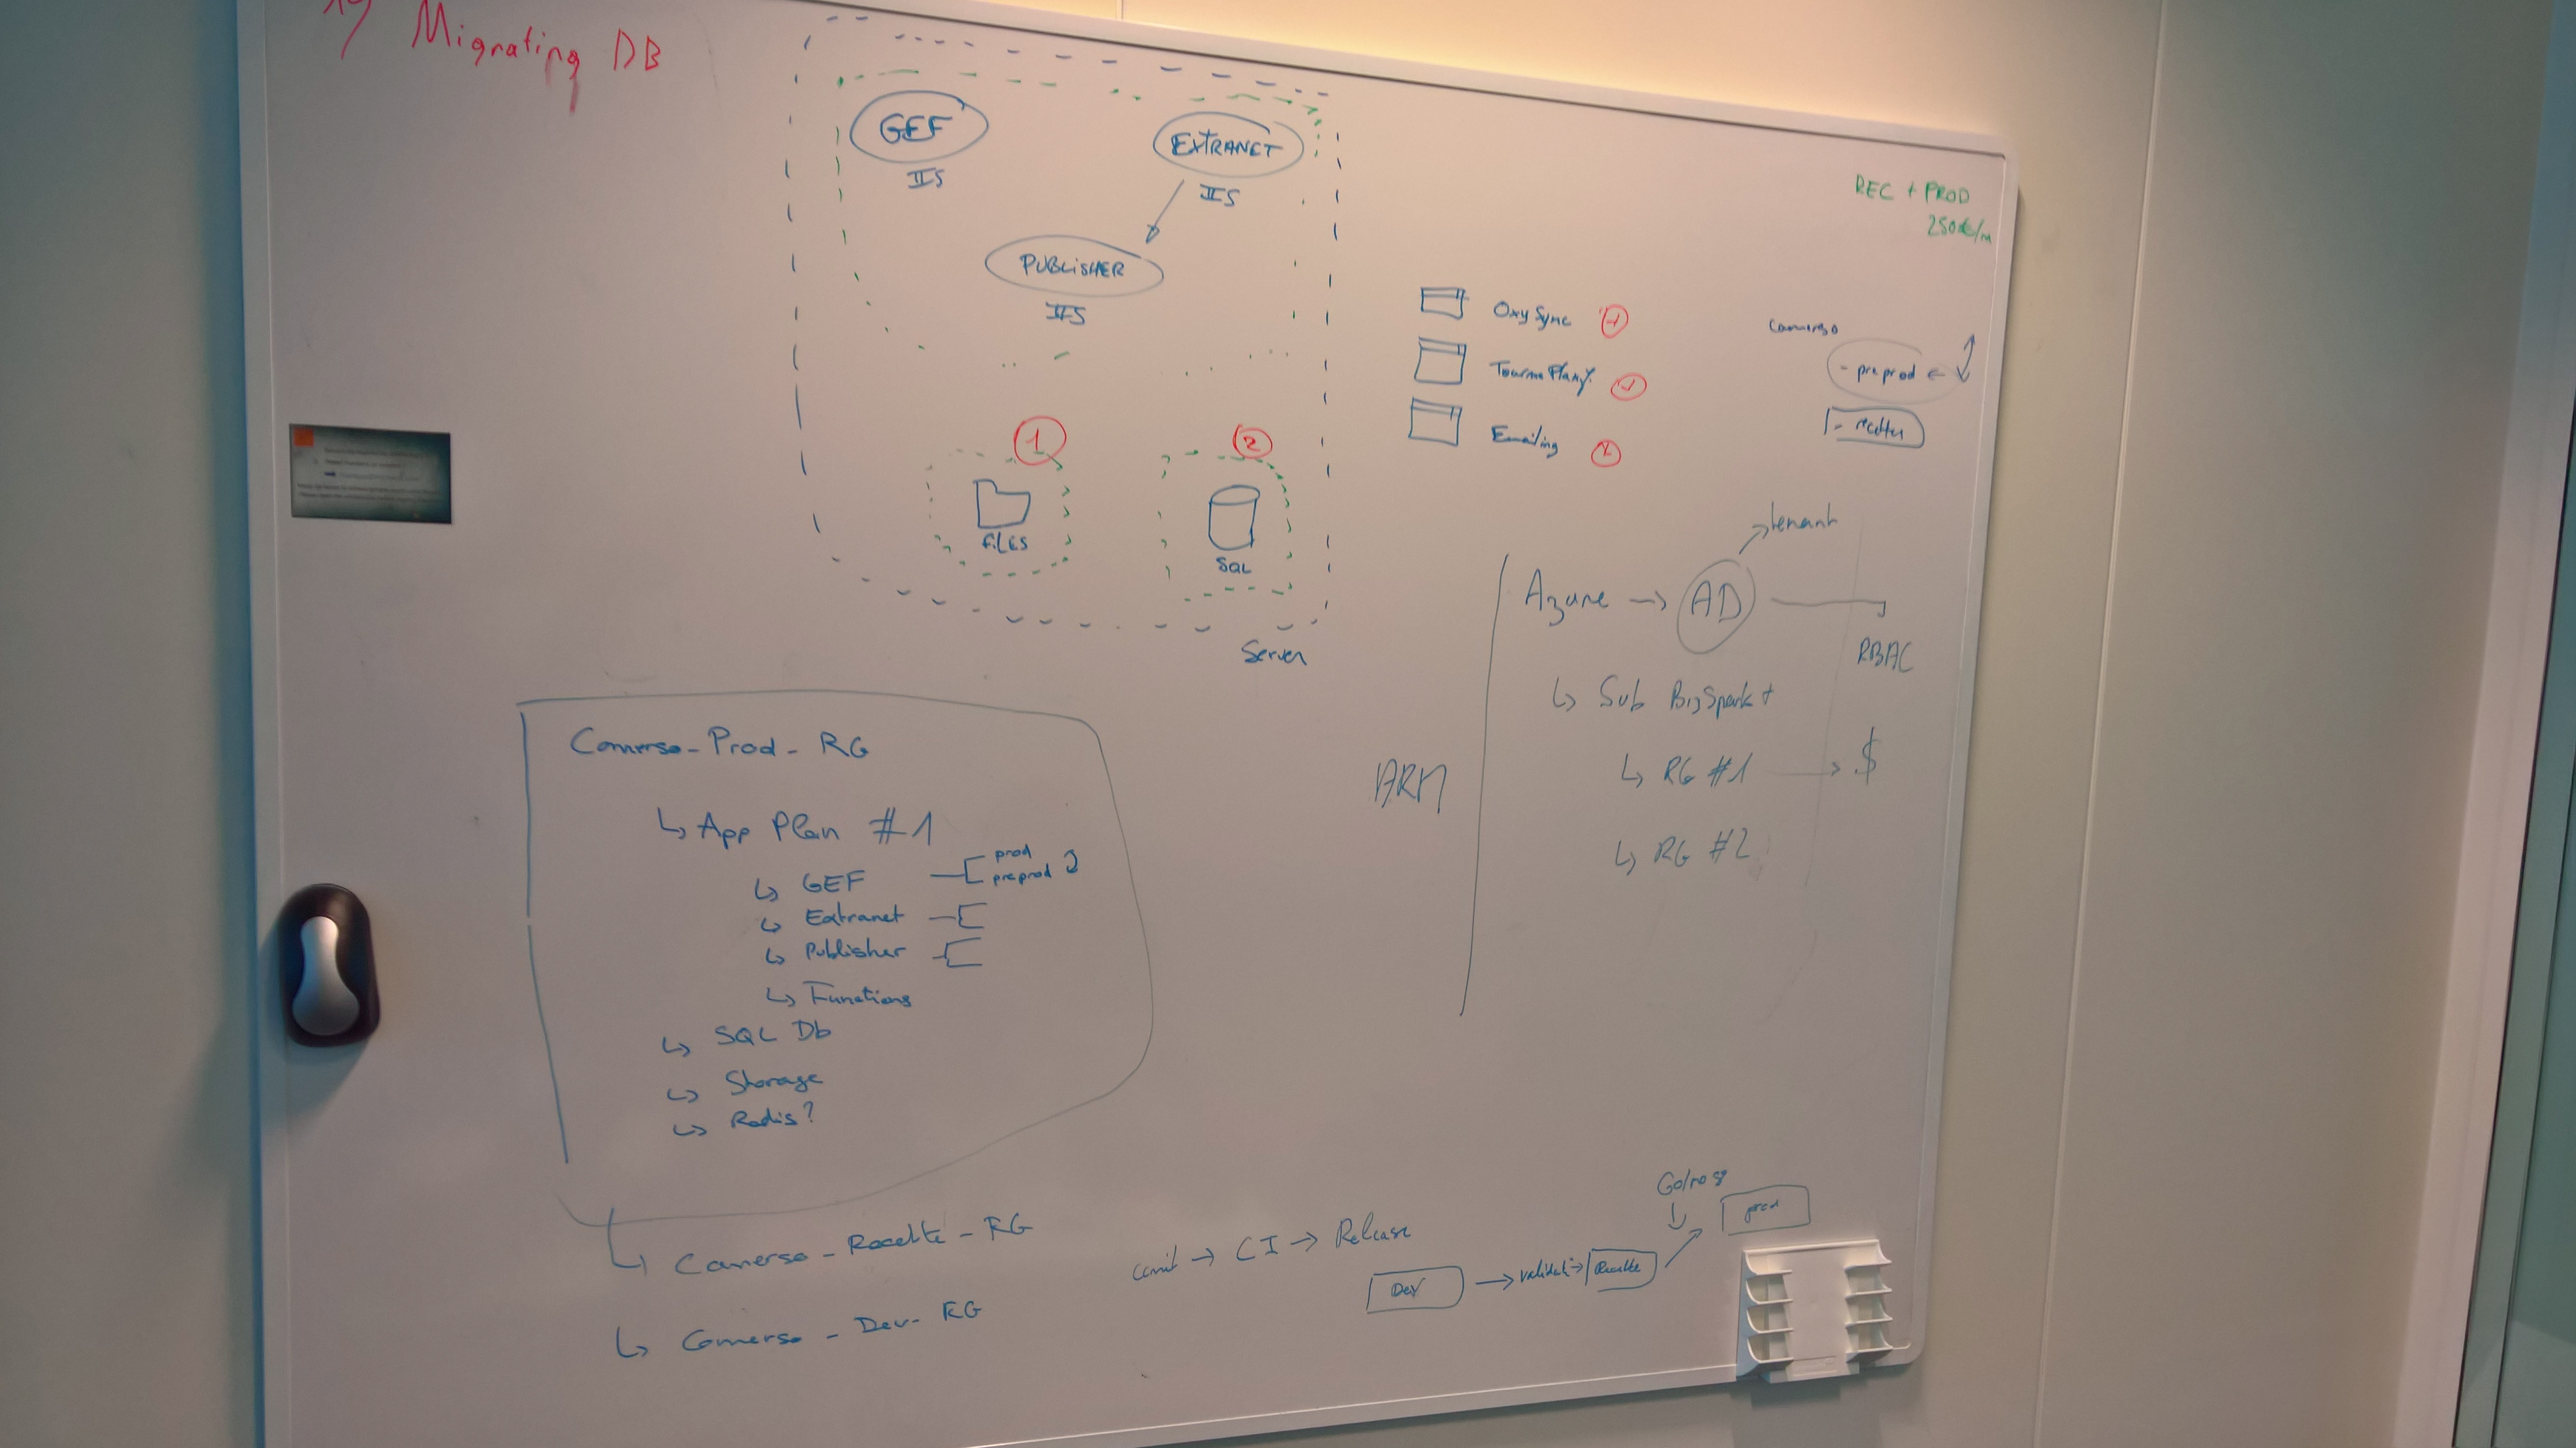 Migrating DB
GEF
IIS
EXTRANET
IIS
PUBLISHER
IIS
1
FILES
2
SQL
Server
REC + PROD
Oxy Sync
Emailing
- preprod ←
tenant
Azure → AD
RBAC
↳ Sub BizSpark +
↳ RG #1 → $
↳ RG #2
ARM
Comerso - Prod - RG
↳ App Plan #1
↳ GEF
prod
preprod
↳ Extranet
↳ Publisher
↳ Functions
↳ SQL Db
↳ Storage
↳ Redis?
↳ Comerso - Recette - RG
↳ Comerso - Dev - RG
→ CI → Release
Dev → → Recette
prod